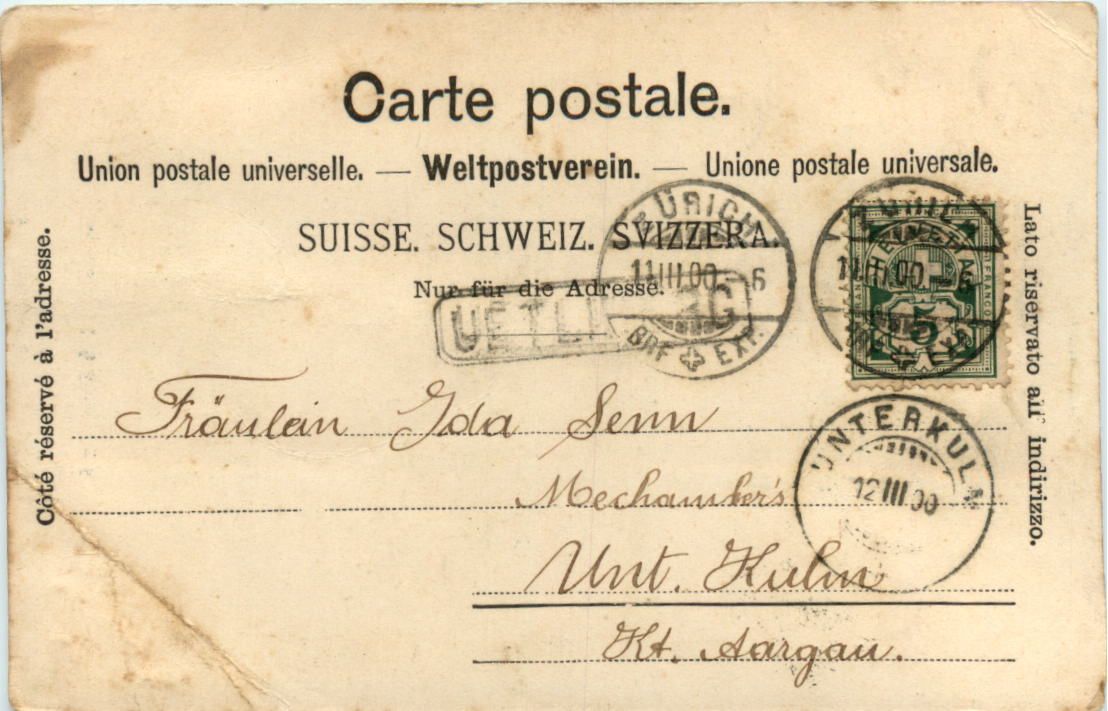 Carte postale.
Union postale universelle. — Weltpostverein. — Unione postale universale.
SUISSE. SCHWEIZ. SVIZZERA.
Nur für die Adresse.
Côté réservé à l'adresse.
Lato riservato all' indirizzo.
ZÜRICH
11 III 00 – 6
BRF EXP.
ZÜRICH
11 III 00 – 6
BRF EXP.
HELVETIA
FRANCO
5
Fräulein Ida Senn
Unt. Kulm
Kt. Aargau.
UNTERKULM
12 III 00